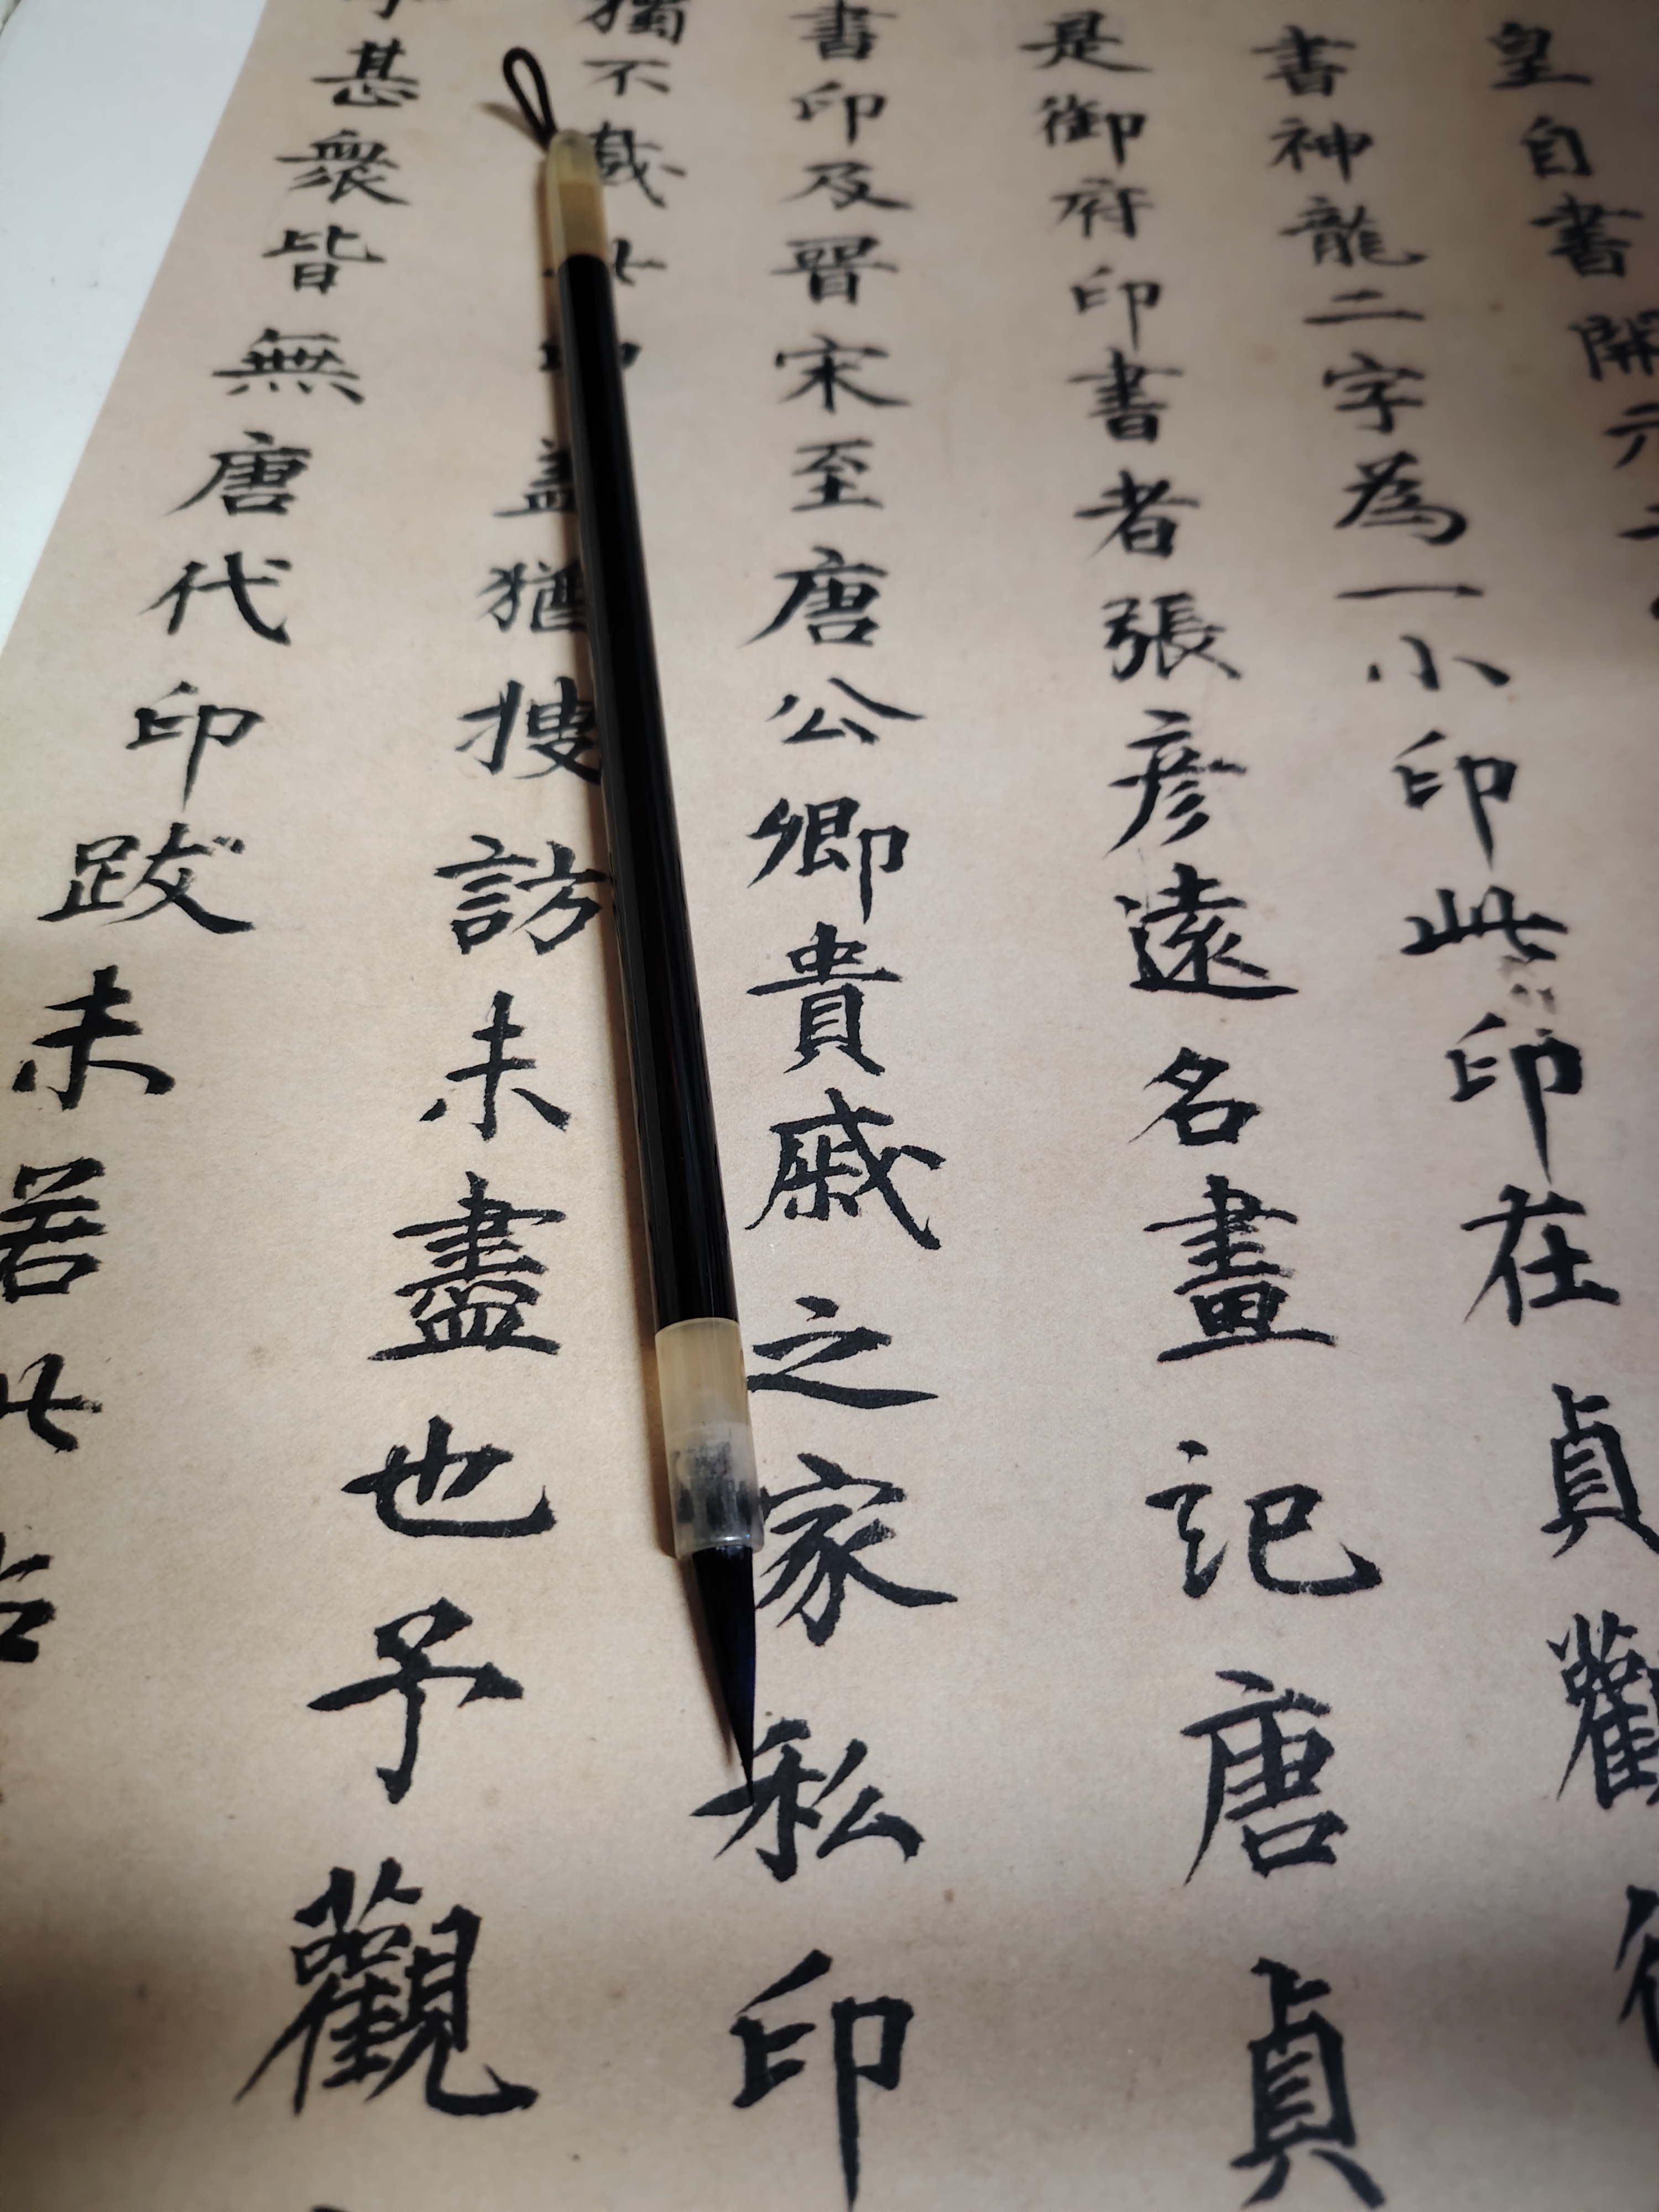 皇自書開元二
書神龍二字為一小印此印在貞觀
是御府印書者張彥遠名畫記唐貞
書印及晉宋至唐公卿貴戚之家私印
獨不載此印蓋猶搜訪未盡也予觀
甚衆皆無唐代印跋未若此